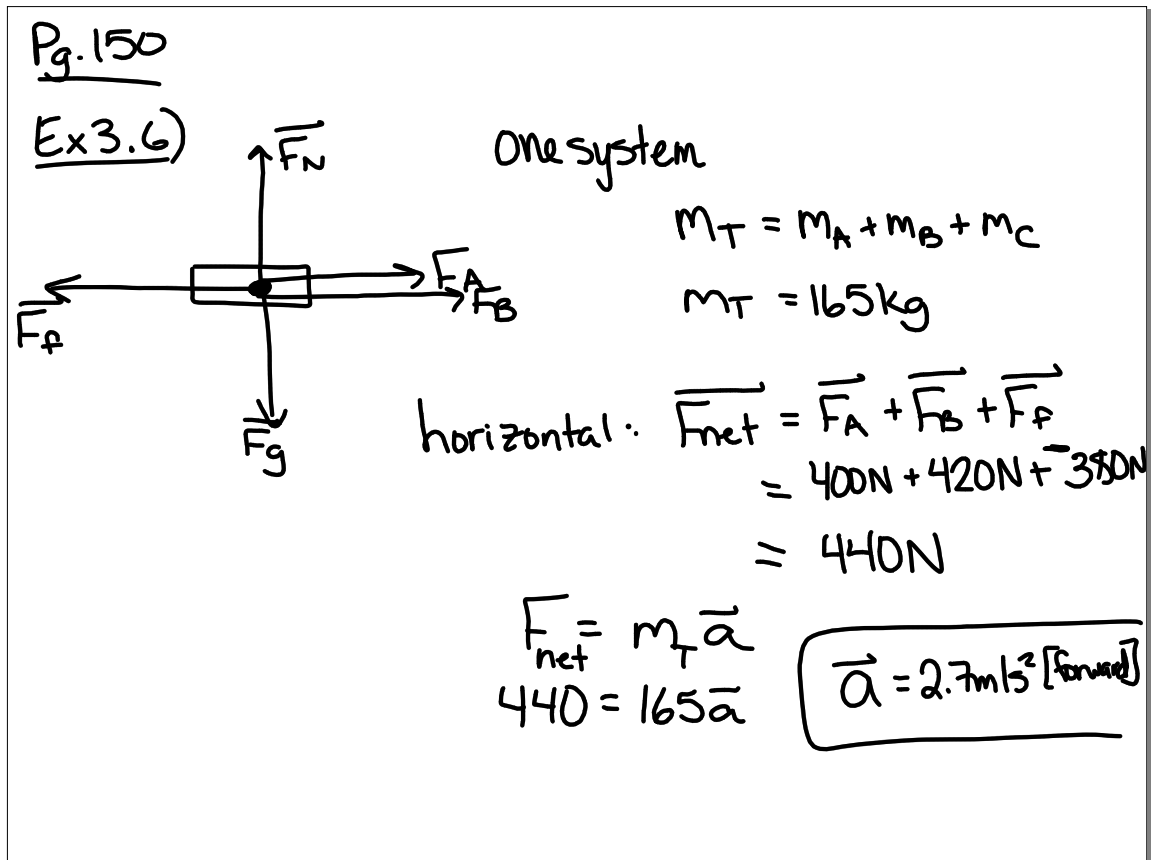 Pg. 150
Ex 3.6)
F_N
F_A
F_B
F_f
F_g
one system
m_T = m_A + m_B + m_C
m_T = 165kg
horizontal: F_net = F_A + F_B + F_f
= 400N + 420N + ⁻380N
= 440N
F_net = m_T a
440 = 165a
a = 2.7m/s² [forward]